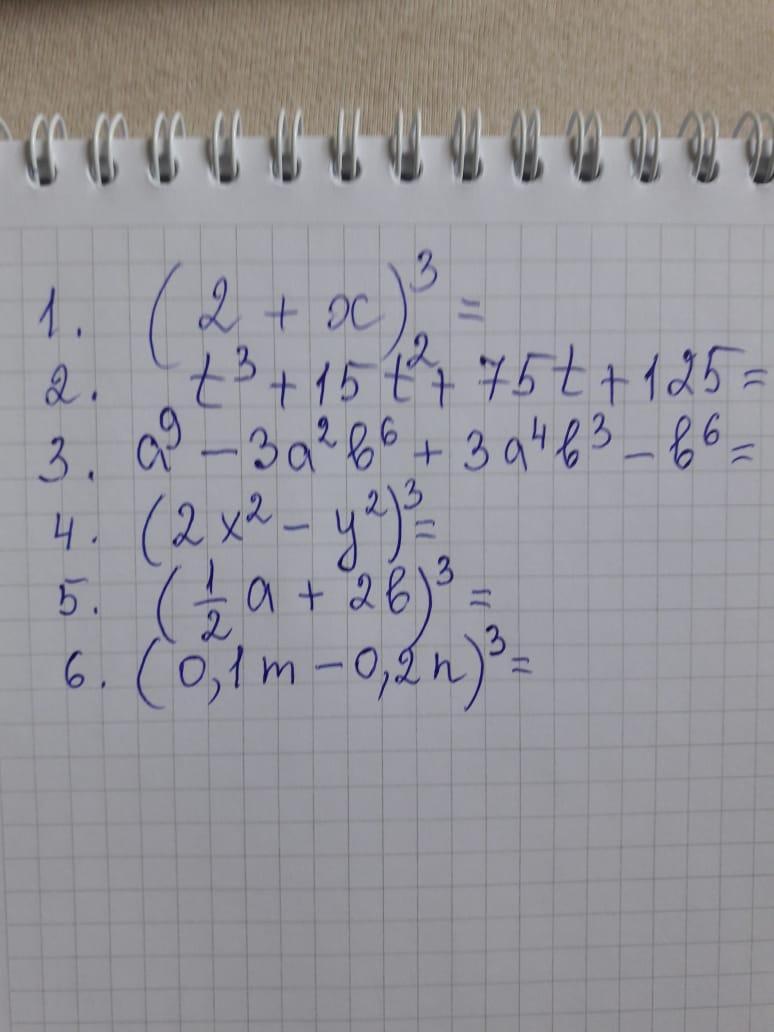 1. (2 + x)³ =
2. t³ + 15t² + 75t + 125 =
3. a⁹ - 3a²b⁶ + 3a⁴b³ - b⁶ =
4. (2x² - y²)³ =
5. (1/2 a + 2b)³ =
6. (0,1m - 0,2n)³ =